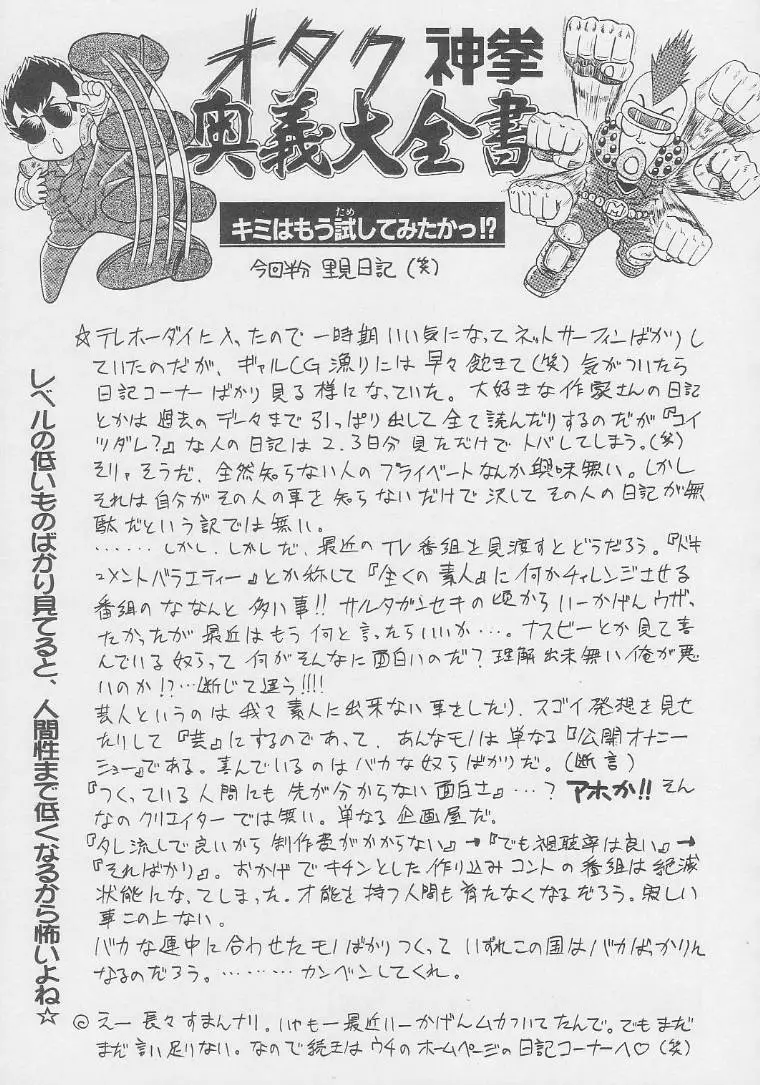 オタク神拳
奥義大全書
キミはもう試してみたかっ!?
ため
今回半分 里見日記(笑)
M
レベルの低いものばかり見てると、人間性まで低くなるから怖いよね☆
☆テレホーダイに入ったので一時期いい気になってネットサーフィンばかりし
ていたのだが、ギャルCG漁りには早々飽きて(笑)気がついたら
日記コーナーばかり見る様になっていた。大好きな作家さんの日記
とかは過去のデータまで引っぱり出して全て読んだりするのだが『コイ
ツダレ?』な人の日記は2.3日分見ただけでトバしてしまう。(笑)
そりゃそうだ、全然知らない人のプライベートなんか興味無い。しかし
それは自分がその人の事を知らないだけで決してその人の日記が無
駄だという訳では無い。
……しかし、しかしだ、最近のTV番組を見渡すとどうだろう。『ドキ
ュメントバラエティー』とか称して『全くの素人』に何かチャレンジさせる
番組のななんと多い事!!サルタガンセキの頃からいーかげんウザっ
たかったが最近はもう何と言ったらいいか…。ナスビーとか見て喜
んでいる奴らって何がそんなに面白いのだ?理解出来無い俺が悪
いのか!?…断じて違う!!!!
芸人というのは我々素人に出来ない事をしたり、スゴイ発想を見せ
たりして『芸』にするのであって、あんなモノは単なる『公開オナニー
ショー』である。喜んでいるのはバカな奴らばかりだ。(断言)
『つくっている人間にも先が分からない面白さ』…?アホか!!そん
なのクリエイターでは無い。単なる企画屋だ。
『タレ流しで良いから制作費がかからない』→『でも視聴率は良い』→
『そればかり』。おかげでキチンとした作り込みコントの番組は絶滅
状態になってしまった。才能を持つ人間も育たなくなるだろう。寂しい
事この上ない。
バカな連中に合わせたモノばかりつくっていずれこの国はバカばっかりん
なるのだろう。………カンベンしてくれ。
◎えー長々すまんナリ。いやもー最近いーかげんムカついてたんで。でもまだ
まだ言い足りない。なので続きはウチのホームページの日記コーナーへ♡(笑)